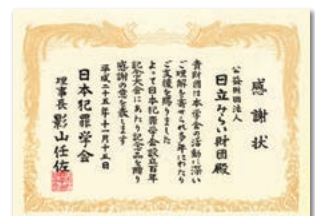 感謝状
公益財団法人
日立みらい財団殿
貴財団は本学会の活動に深い
ご理解を寄せられ多年にわたり
ご支援を賜りました
よって日本犯罪学会設立百年
記念大会にあたり記念品を贈り
感謝の意を表します
平成二十五年十一月十五日
日本犯罪学会
理事長 影山任佐